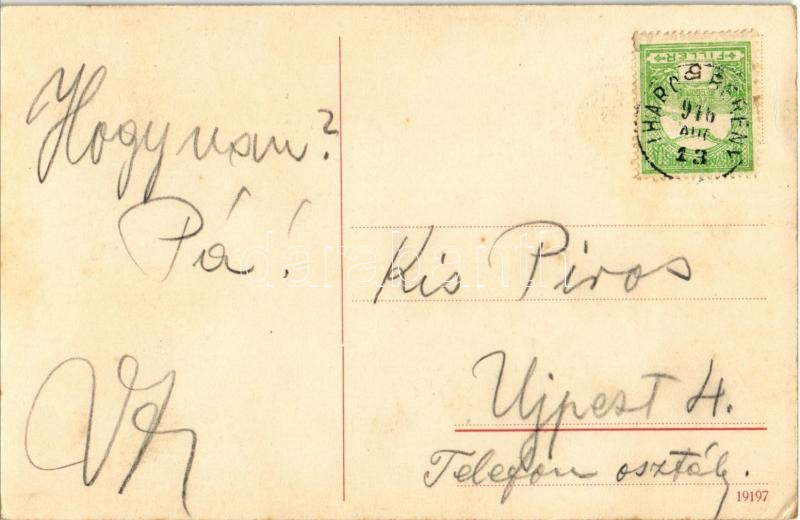 Hogy van?
Pá!
5
FILLÉR
IHAROSBERÉNY
916
AUG
13
Kis Piros
Ujpest 4.
Telefon osztály.
19197
darabanth